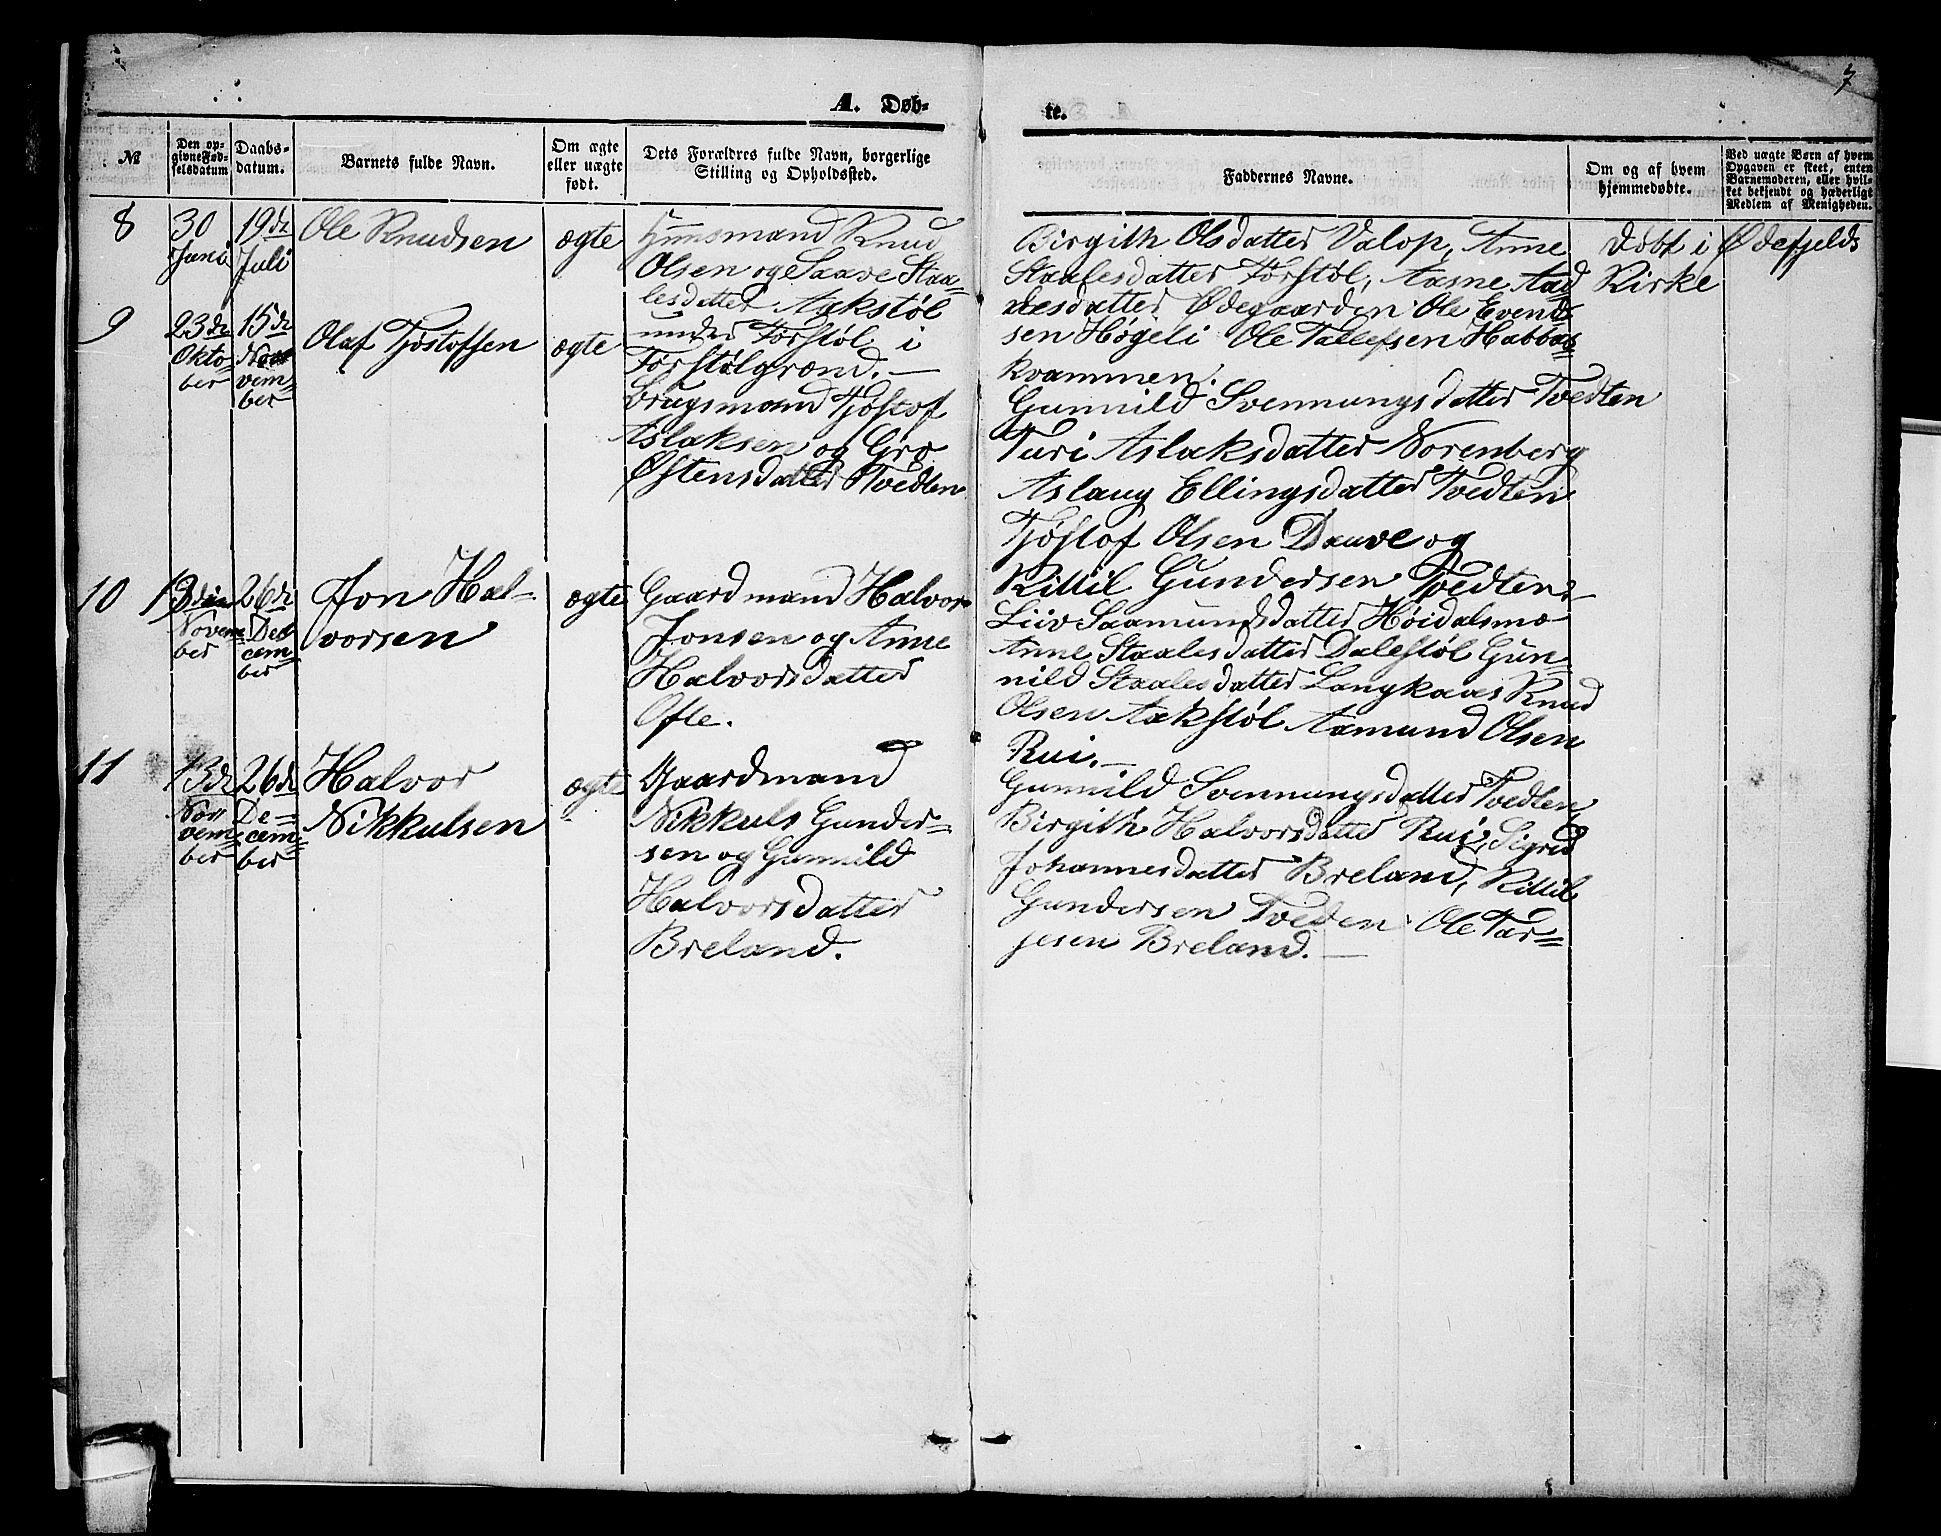 7
A. Døb-
te.
№
Den op-
givne Fød-
selsdatum
Daabs-
datum.
Barnets fulde Navn.
Om ægte
eller uægte
født.
Dets Forældres fulde Navn, borgerlige
Stilling og Opholdssted.
Faddernes Navne.
Om og af hvem
hjemmedøbte.
Ved uægte Børn af hvem
Opgaven er skeet, enten
Barnemoderen, eller hvil-
ket bekjendt og hæderligt
Medlem af Menigheden.
8
30
Juni
19de
Juli
Ole Knudsen
ægte
Huusmand Knud
Olsen og Saave Staa-
lesdatter Aakstøl
under Førstøl i
Førstølgrænd. —
Birgith Olsdatter Valop, Anne
Staalesdatter Førstøl, Aasne Aad
nesdatter Ødegaarden Ole Evend-
sen Høgeli Ole Tallefsen Habbas-
kvammen.
døbt i Ødefjelds
Kirke
9
23de
Okto-
ber
15de
Nov
vem-
ber
Olaf Tjøstofsen
ægte
Brugsmand Tjøstof
Aslaksen og Gro
Østensdatter Tvedten
Gunnild Svennungsdatter Tvedten
Turi Aslaksdatter Norenberg
Aslaug Ellingsdatter Tvedten
Tjøstof Olsen Dauve og
Kittil Gundersen Tvedten
10
13de
Novem
ber
26de
Dec
cem-
ber
Jon Hal-
vorsen
ægte
Gaardmand Halvor
Jonsen og Anne
Halvorsdatter
Ofte.
Liiv Saamundsdatter Høidalsmo
Anne Staalesdatter Dalestøl Gun-
nild Staalesdatter Langkaas Knud
Olsen Aakstøl Aamund Olsen
Rui. —
11
13de
Nov
vem-
ber
26de
De-
cem-
ber
Halvor
Nikkulsen
ægte
Gaardmand
Nikkuls Gunder-
sen og Gunnild
Halvorsdatter
Breland.
Gunnild Svennungsdatter Tvedten,
Birgith Halvorsdatter Rui, Sigrid
Johannesdatter Breland, Kittil
Gundersen Tveden Ole Tar-
jesen Breland. —